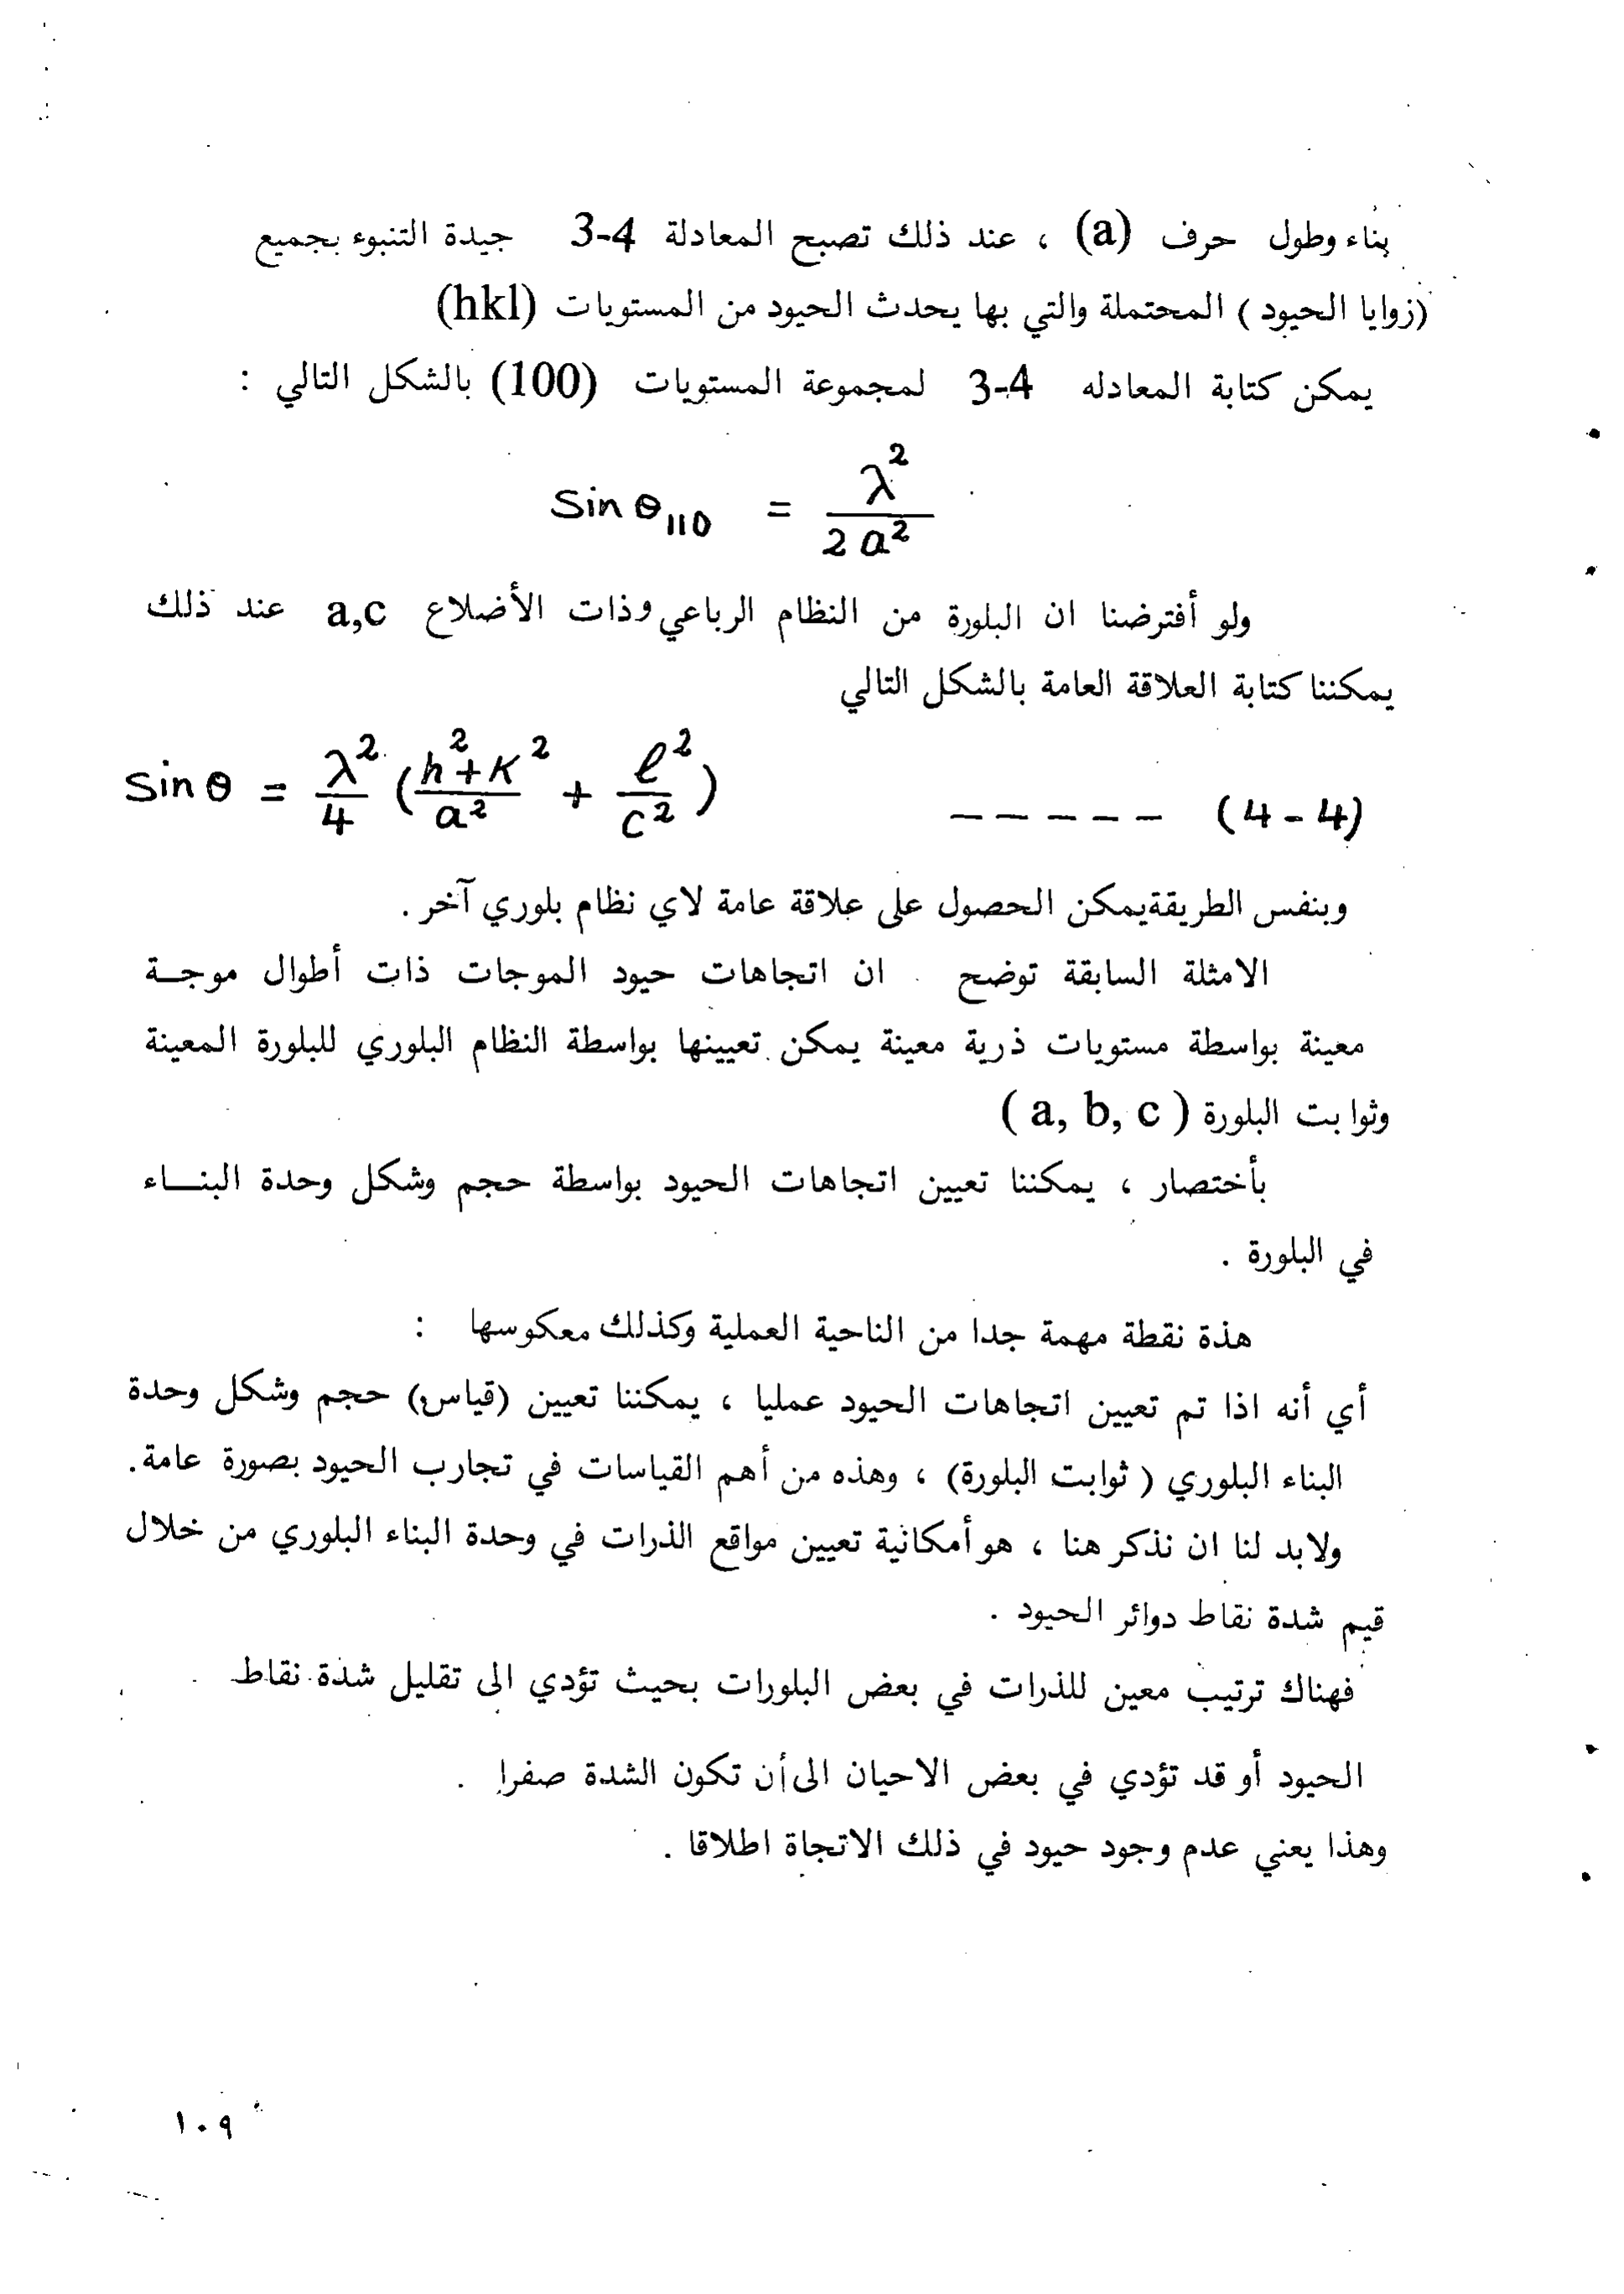 بناء وطول حرف (a) ، عند ذلك تصبح المعادلة 3-4 جيدة التنبوء بجميع
(زوايا الحيود ) المحتملة والتي بها يحدث الحيود من المستويات (hkl)
يمكن كتابة المعادله 3-4 لمجموعة المستويات (100) بالشكل التالي :
Sin θ₁₁₀ = λ² / 2a²
ولو أفترضنا ان البلورة من النظام الرباعي وذات الأضلاع a,c عند ذلك
يمكننا كتابة العلاقة العامة بالشكل التالي
Sin θ = λ²/4 (h²+K²/a² + ℓ²/c²) ----- (4-4)
وبنفس الطريقة يمكن الحصول على علاقة عامة لاي نظام بلوري آخر .
الامثلة السابقة توضح ان اتجاهات حيود الموجات ذات أطوال موجــة
معينة بواسطة مستويات ذرية معينة يمكن تعيينها بواسطة النظام البلوري للبلورة المعينة
وثوابت البلورة ( a, b, c )
بأختصار ، يمكننا تعيين اتجاهات الحيود بواسطة حجم وشكل وحدة البنــاء
في البلورة .
هذة نقطة مهمة جدا من الناحية العملية وكذلك معكوسها :
أي أنه اذا تم تعيين اتجاهات الحيود عمليا ، يمكننا تعيين (قياس) حجم وشكل وحدة
البناء البلوري ( ثوابت البلورة) ، وهذه من أهم القياسات في تجارب الحيود بصورة عامة.
ولابد لنا ان نذكر هنا ، هو أمكانية تعيين مواقع الذرات في وحدة البناء البلوري من خلال
قيم شدة نقاط دوائر الحيود .
فهناك ترتيب معين للذرات في بعض البلورات بحيث تؤدي الى تقليل شدة نقاط
الحيود أو قد تؤدي في بعض الاحيان الى أن تكون الشدة صفرا .
وهذا يعني عدم وجود حيود في ذلك الاتجاة اطلاقا .
١٠٩